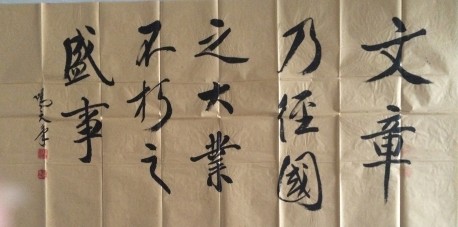 文章
乃經國
之大業
不朽之
盛事